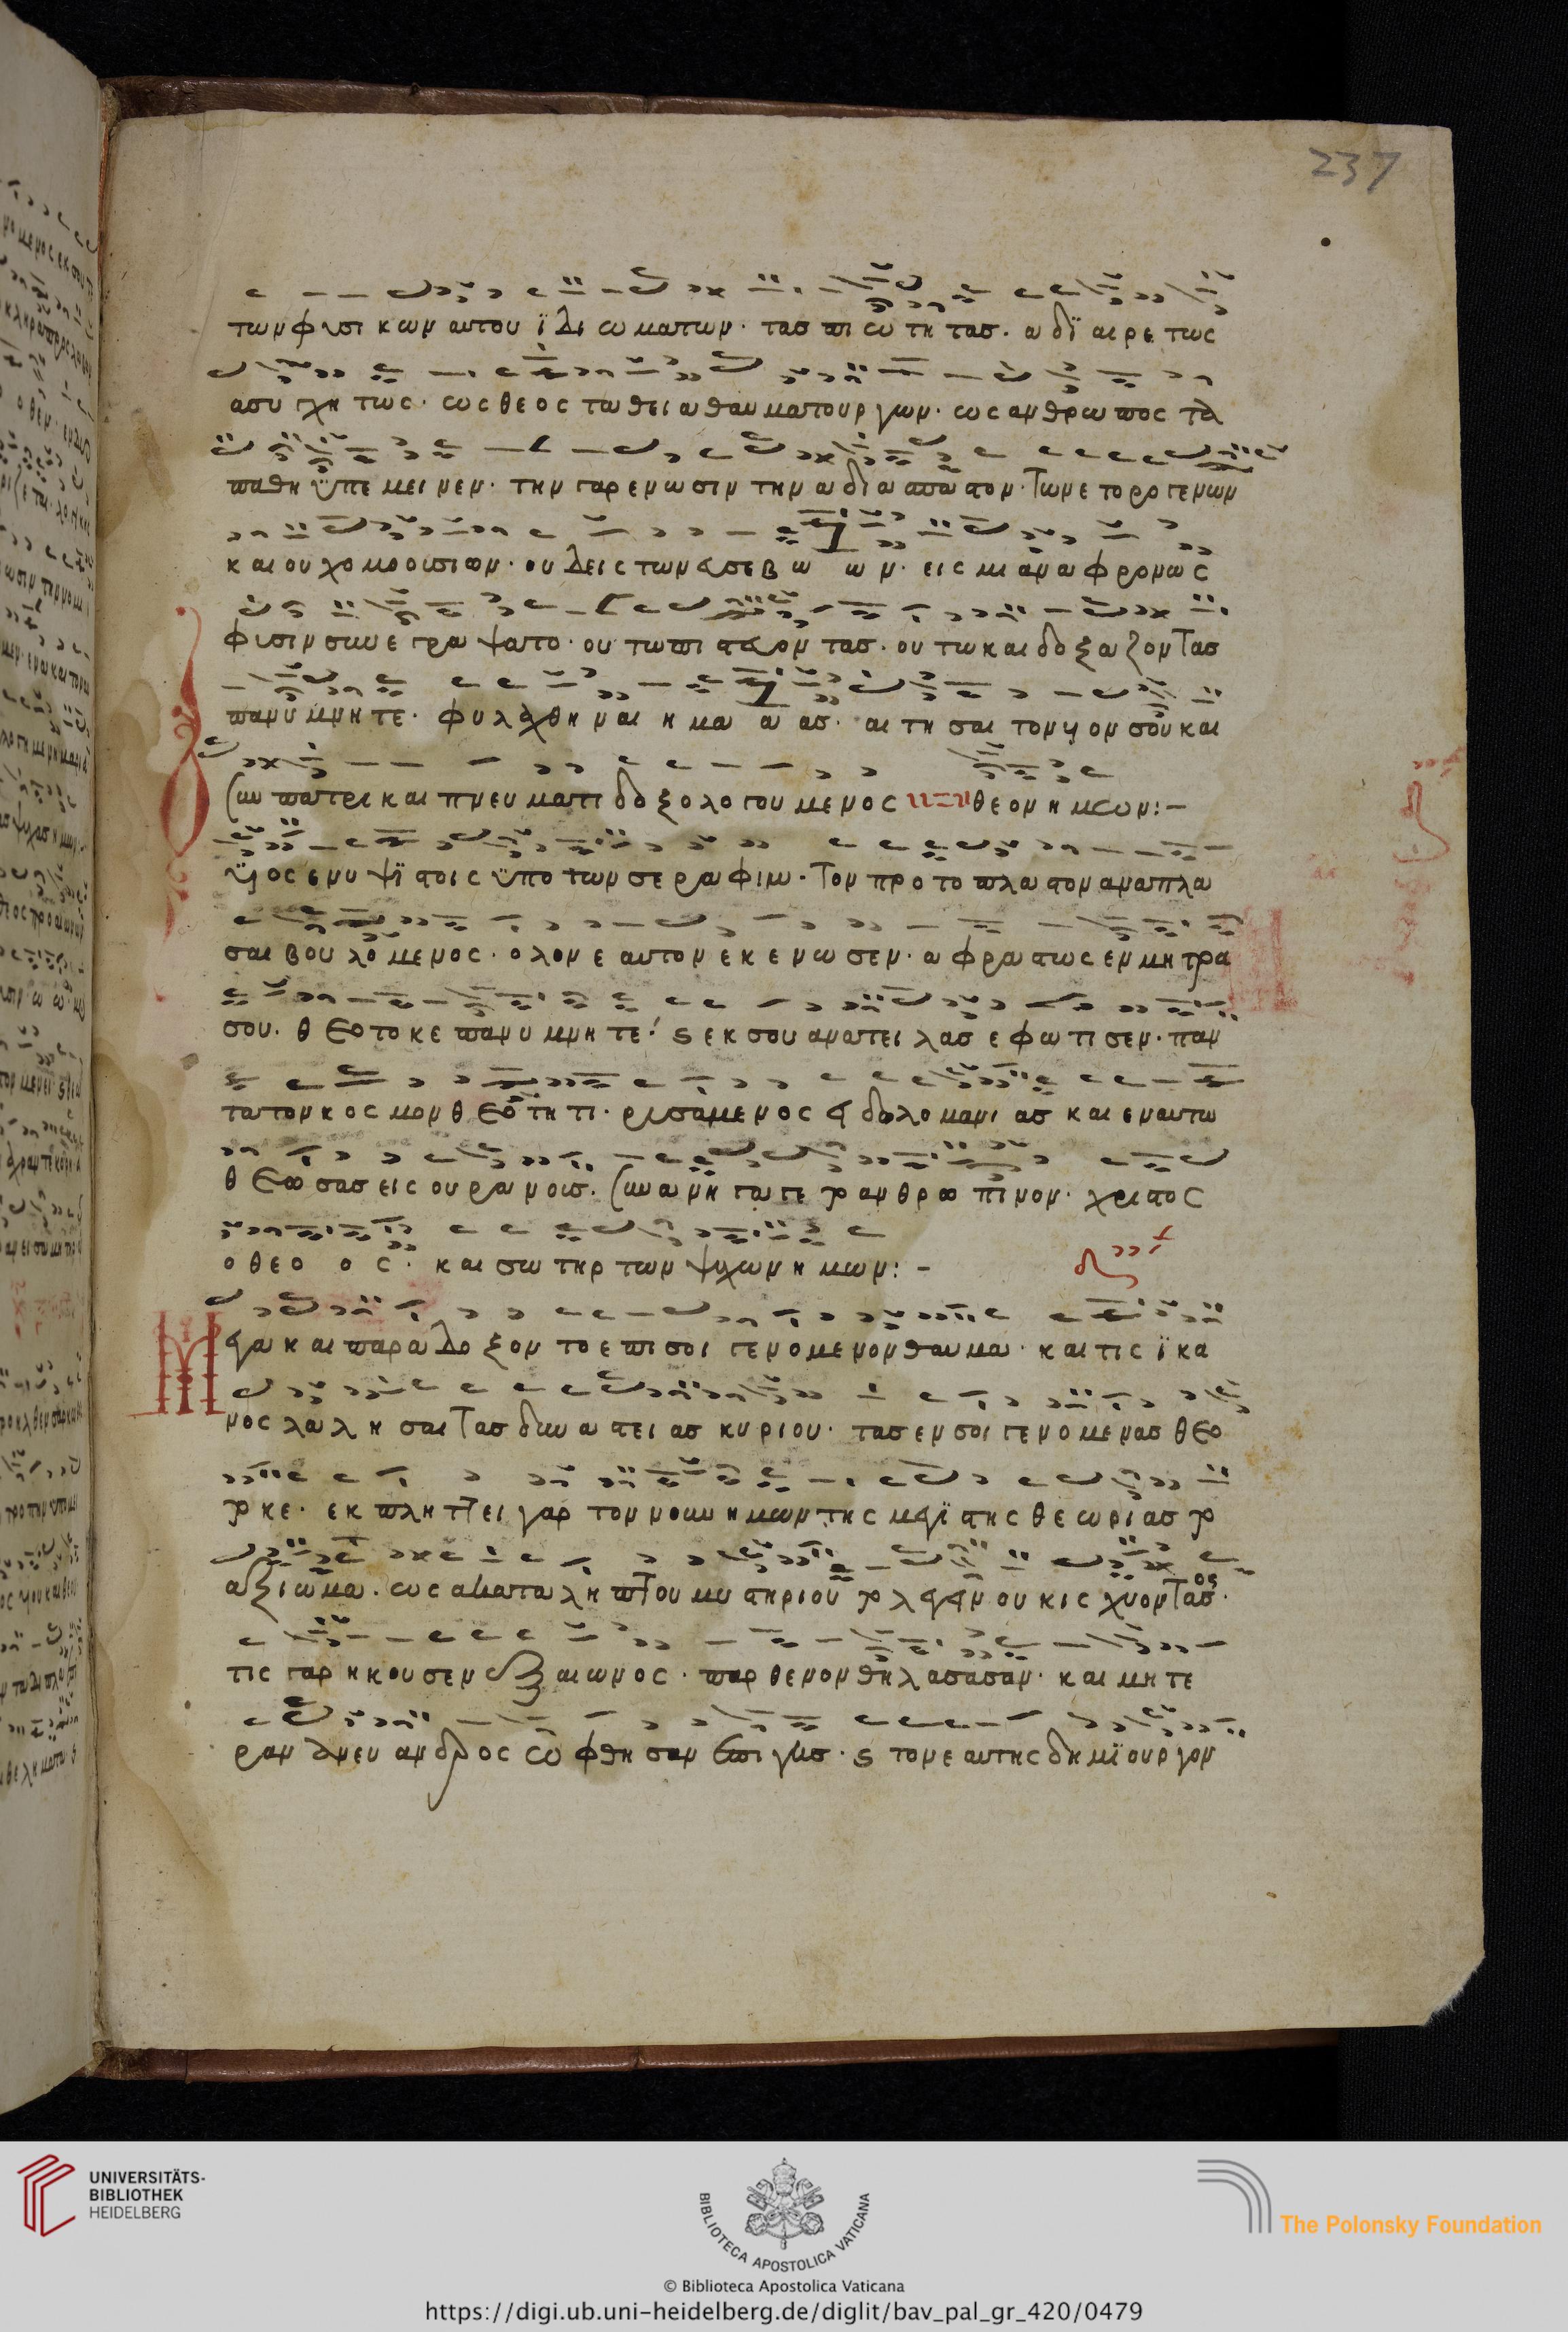 237
των φυσι κων αυτου ϊ δι ω ματων· τας πι ω τη τας. α δϊ αιρε τως
ασυ γχη τως· ως θεος τα θει α θαυ ματουργων· ως ανθρω πος τα
παθη ϋπε μει νεν· την γαρ ενω σιν την α δι α σπα στον· των ετορογενων
και ουχ ομοουσιων· ου δεις των ασεβ ω ω ν· εις μι αν α φρονως
φυσιν συνε γρα ψατο· ου τω πι στευον τας· ου τω και δο ξα ζοντας
πανυ μνη τε· φυλαχθη ναι η μα α ας· αι τη σαι τον υιον σου και
συν πατρι και πνευ ματι δο ξολο γου μενος θεον η μων:-
υιος εν υ ψϊ στοις ϋπο των σε ρα φιμ· τον προ το πλα στον αναπλα
σαι βου λο μενος· ολον ε αυτον εκε νω σεν· α φρα στως εν μη τρα
σου· θεοτοκε πανυ μνη τε· ϛ εκ σου ανατει λας ε φω τι σεν· παν
τα τον κος μον θεο τη τι· ρυσαμενος ειδολο μανι ας και εν αυτω
θεω σας εις ου ρα νους· συν α νη γα γε το ανθρω πινον· χριστος
ο θεο ο ς· και σω τηρ των ψυχων η μων:-
Μεγα και παρα δο ξον το ε πι σοι γεν ομενον θαυμα· και τις ϊ κα
νος λαλ η σαι τας δυν α στει ας κυριου· τας εν σοι γεν ομενας θεο
το κε· εκ πλητ τει γαρ τον νουν η μων της μεϊ στης θε ωρι ας το
αξι ω μα· ως ακατα λη πτου μυ στηριου το λεγειν ουκ ισχυοντας·
ος
τις γαρ ηκου σεν εξ αιωνος· παρ θενον θηλ ασασαν· και μη τε
ραν ανευ ανδρος ω φθη σαν επι γης· ϛ τον ε αυτης δη μϊουργον
UNIVERSITÄTS-
BIBLIOTHEK
HEIDELBERG
BIBLIOTECA APOSTOLICA VATICANA
The Polonsky Foundation
© Biblioteca Apostolica Vaticana
https://digi.ub.uni-heidelberg.de/diglit/bav_pal_gr_420/0479